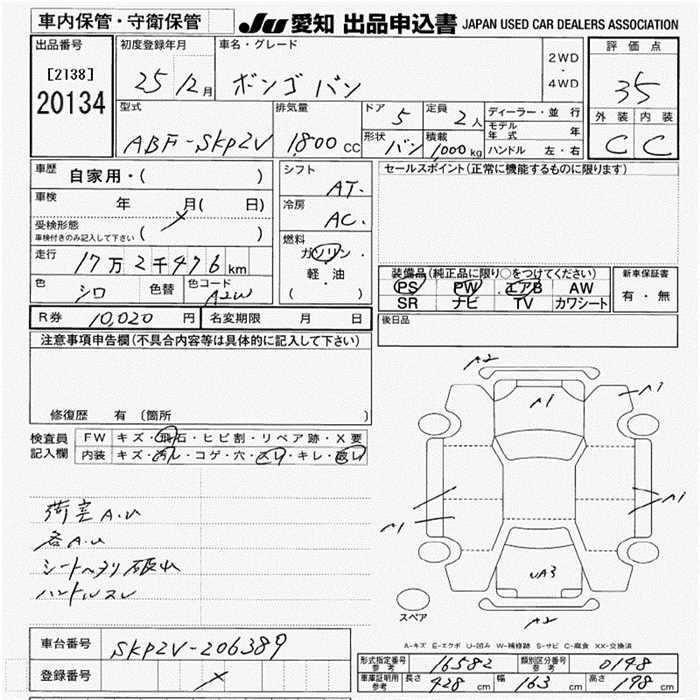 車内保管・守衛保管
JU 愛知 出品申込書 JAPAN USED CAR DEALERS ASSOCIATION
出品番号 初度登録年月 車名・グレード 2WD・4WD 評価点
[2138]
20134
25 12月 ボンゴ バン 35
型式 排気量 ドア 5 定員 2人 ディーラー・並行 外装 内装
ABF-SKP2V 1,800 CC 形状 バン 積載 1,000 kg モデル年式 年 C C
ハンドル 左・右
車歴 自家用・( ) シフト AT. セールスポイント(正常に機能するものに限ります)
車検 年 月( 日) 冷房 AC.
受検形態
車検付きのみ記入して下さい ( ) 燃料
走行 17万2千476km ガソリン・軽油 ( ) 装備品(純正品に限り○をつけてください) 新車保証書
色 シロ 色替 色コード A2W PS PW エアB AW 有・無
SR ナビ TV カワシート
R券 10,020円 名変期限 月 日 後日品
注意事項申告欄(不具合内容等は具体的に記入して下さい)
修復歴 有(箇所 )
検査員記入欄 FW キズ・飛石・ヒビ割・リペア跡・X要
内装 キズ・汚レ・コゲ・穴・スレ・キレ・破レ
荷室A.U
各A.U
シートヘタリ 破れ
ハンドルスレ
A2
A1
A1
A1
A1
UA3
A2
スペア
A-キズ E-エクボ U-凹み W-補修跡 S-サビ C-腐食 XX-交換済
車台番号 SKP2V-206389
登録番号
形式指定番号 参考 16582 類別区分番号 参考 0148
車庫証明用 参考 長さ 428 cm 幅 163 cm 高さ 198 cm